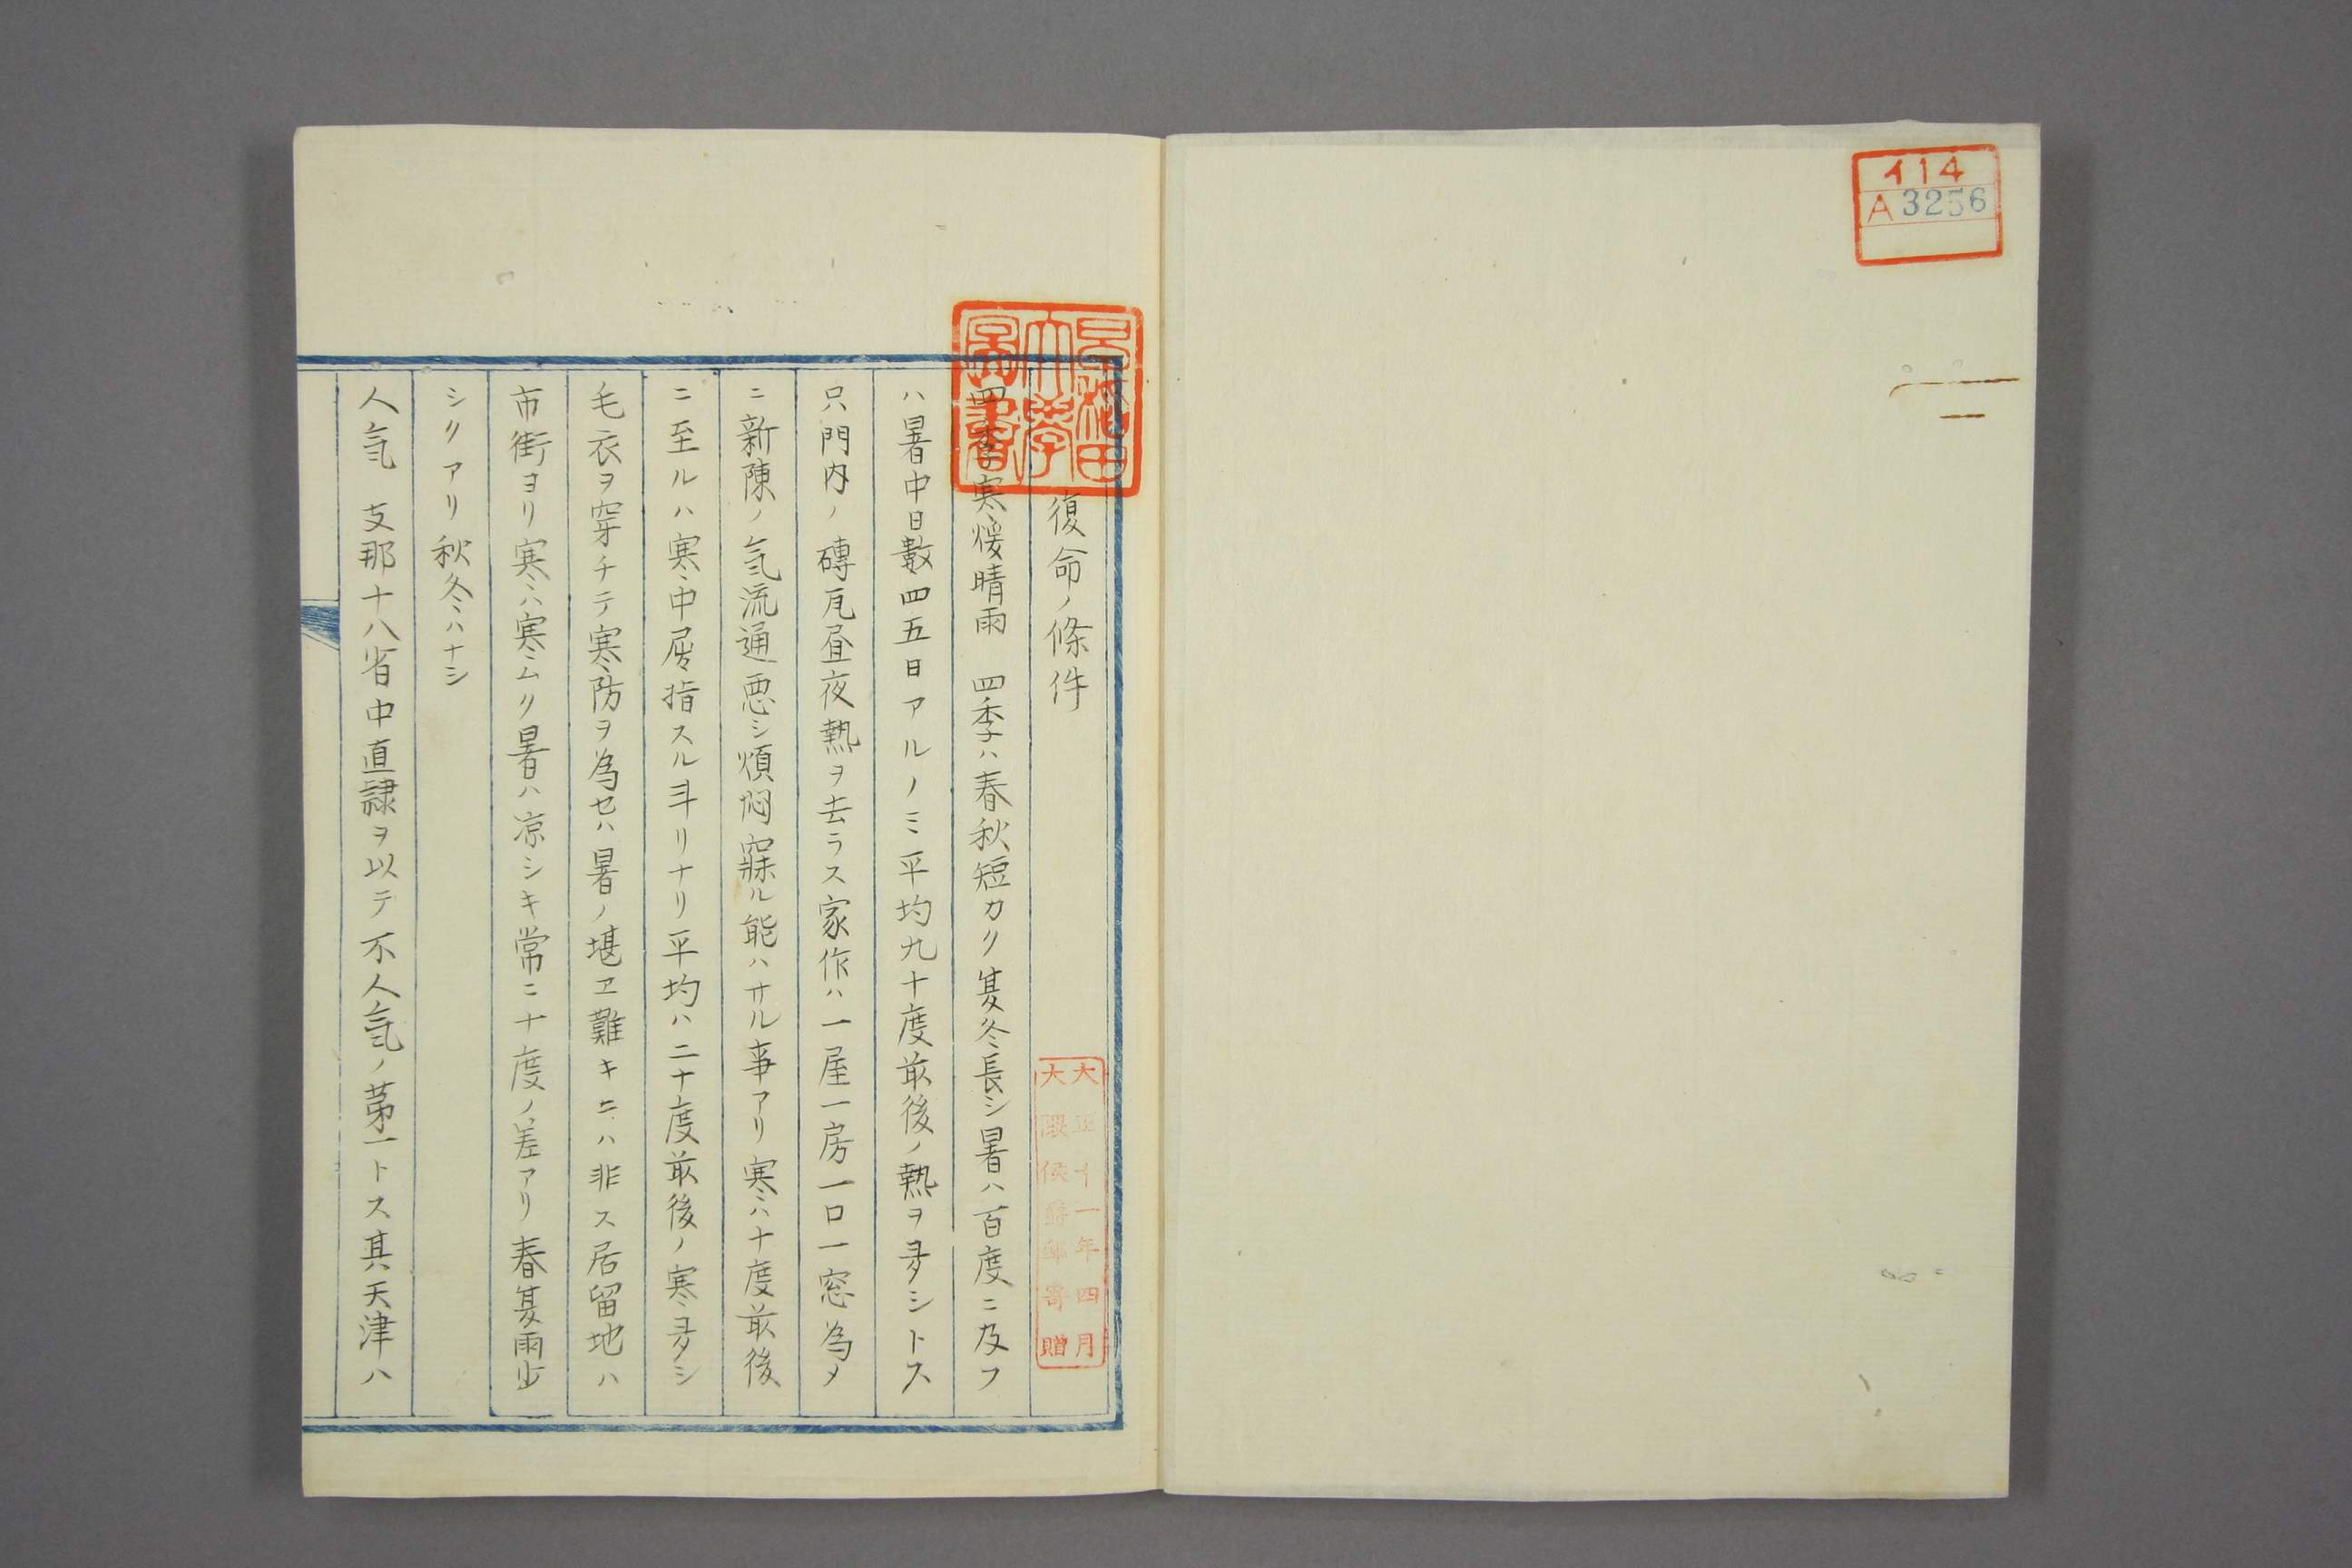 イ14
A3256
早稲田
大学
図書
復命ノ條件
大正十一年四月
大隈侯爵邸寄贈
四季寒煖晴雨　四季ハ春秋短カク夏冬長シ暑ハ百度ニ及フ
ハ暑中日數四五日アルノミ平均九十度最後ノ熱ヲ多シトス
只門内ノ磚瓦昼夜熱ヲ去ラス家作ハ一屋一房一口一窓為メ
ニ新陳ノ気流通悪シ煩悶寐ル能ハサル事アリ寒ハ十度最後
ニ至ルハ寒中屈指スル斗リナリ平均ハ二十度最後ノ寒多シ
毛衣ヲ穿チテ寒防ヲ為セハ暑ノ堪ヱ難キニハ非ス居留地ハ
市街ヨリ寒ハ寒ムク暑ハ凉シキ常ニ十度ノ差アリ春夏雨少
シクアリ秋冬ハナシ
人氣　支那十八省中直隷ヲ以テ不人氣ノ第一トス其天津ハ